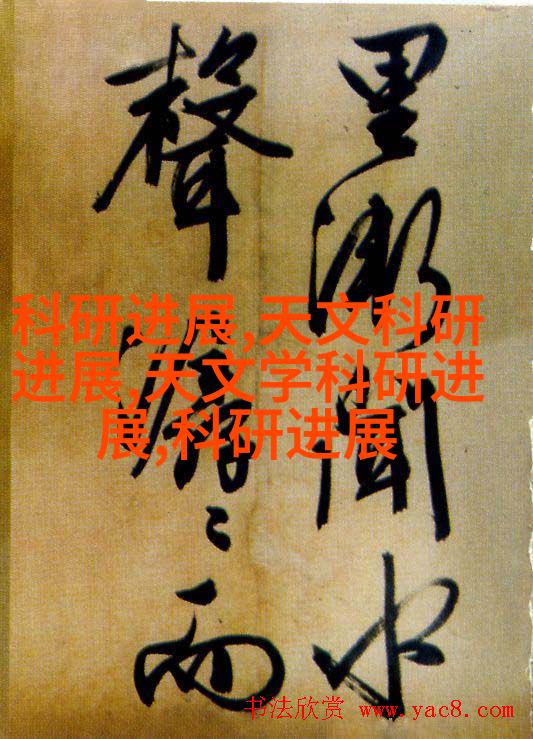 里漸聞水
聲潺〻而
科研进展,天文科研
进展,天文学科研进
展,科研进展
书法欣赏 www.yac8.com